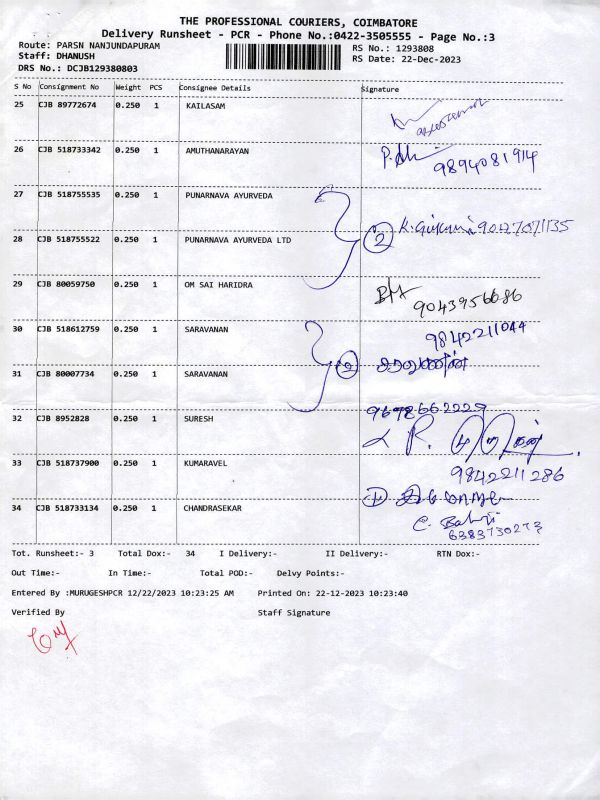 THE PROFESSIONAL COURIERS, COIMBATORE
Delivery Runsheet - PCR - Phone No.:0422-3505555 - Page No.:3
Route: PARSN NANJUNDAPURAM RS No.: 1293808
Staff: DHANUSH RS Date: 22-Dec-2023
DRS No.: DCJB129380803
S No Consignment No Weight PCS Consignee Details Signature
25 CJB 89772674 0.250 1 KAILASAM
26 CJB 518733342 0.250 1 AMUTHANARAYAN 9894081914
27 CJB 518755535 0.250 1 PUNARNAVA AYURVEDA
2
28 CJB 518755522 0.250 1 PUNARNAVA AYURVEDA LTD
29 CJB 80059750 0.250 1 OM SAI HARIDRA
9043956686
30 CJB 518612759 0.250 1 SARAVANAN 9842211044
31 CJB 80007734 0.250 1 SARAVANAN 2 சரவணன்
32 CJB 8952828 0.250 1 SURESH 9698662229
33 CJB 518737900 0.250 1 KUMARAVEL 9842211286
34 CJB 518733134 0.250 1 CHANDRASEKAR
6383730273
Tot. Runsheet:- 3 Total Dox:- 34 I Delivery:- II Delivery:- RTN Dox:-
Out Time:- In Time:- Total POD:- Delvy Points:-
Entered By :MURUGESHPCR 12/22/2023 10:23:25 AM Printed On: 22-12-2023 10:23:40
Verified By Staff Signature